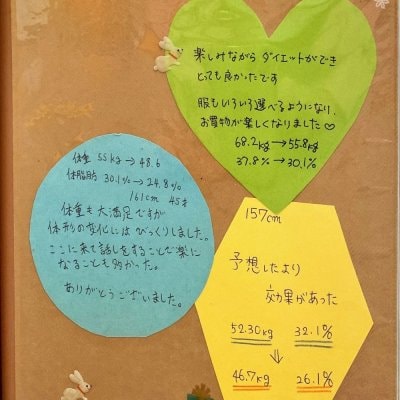 楽しみながらダイエットができ
とっても良かったです
服もいろいろ選べるようになり、
お買物が楽しくなりました♡
68.2kg→55.8kg
37.8%→30.1%
体重 55kg→48.6
体脂肪 30.1%→24.8%
161cm 45才
体重も大満足ですが
体形の変化にはびっくりしました。
ここに来て話しをすることで楽に
なることも多かった。
ありがとうございました。
157cm
予想したより
効果があった
52.30kg 32.1%
⇓
46.7kg 26.1%